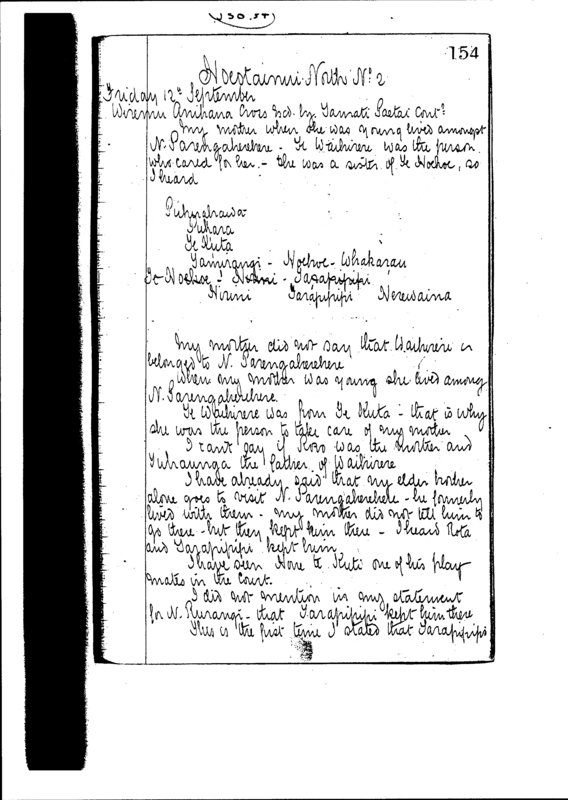 154
Hoetainui North No 2
Friday 12th September
Wiremu Anihana Cross Exd. by Tamati Paetai Contd
My mother when she was young lived amongst
N. Parengaherehere - Te Waihirere was the person
who cared for her - she was a sister of Te Hoehoe, so
I heard
Puhara
Te Kuta
Tamurangi - Hoehoe - Whakarau
Te Hoehoe - Hirini - Tarapipipi
Hirini Tarapipipi Nerewaina
My mother did not say that Waihirere
belonged to N. Parengaherehere
When my mother was young she lived among
N. Parengaherehere.
Te Waihirere was from Te Kuta - that is why
she was the person to take care of my mother
I can't say if Koro was the mother and
Tuhaunga the father of Waihirere
I have already said that my elder brother
alone goes to visit N. Parengaherehere - he formerly
lived with them - my mother did not tell him to
go there - but they kept him there - I heard Rota
and Tarapipipi kept him
I have seen Hone te Kuti one of his play
mates in the Court.
I did not mention in my statement
for N. Rurangi - that Tarapipipi kept him there
This is the first time I stated that Tarapipipi